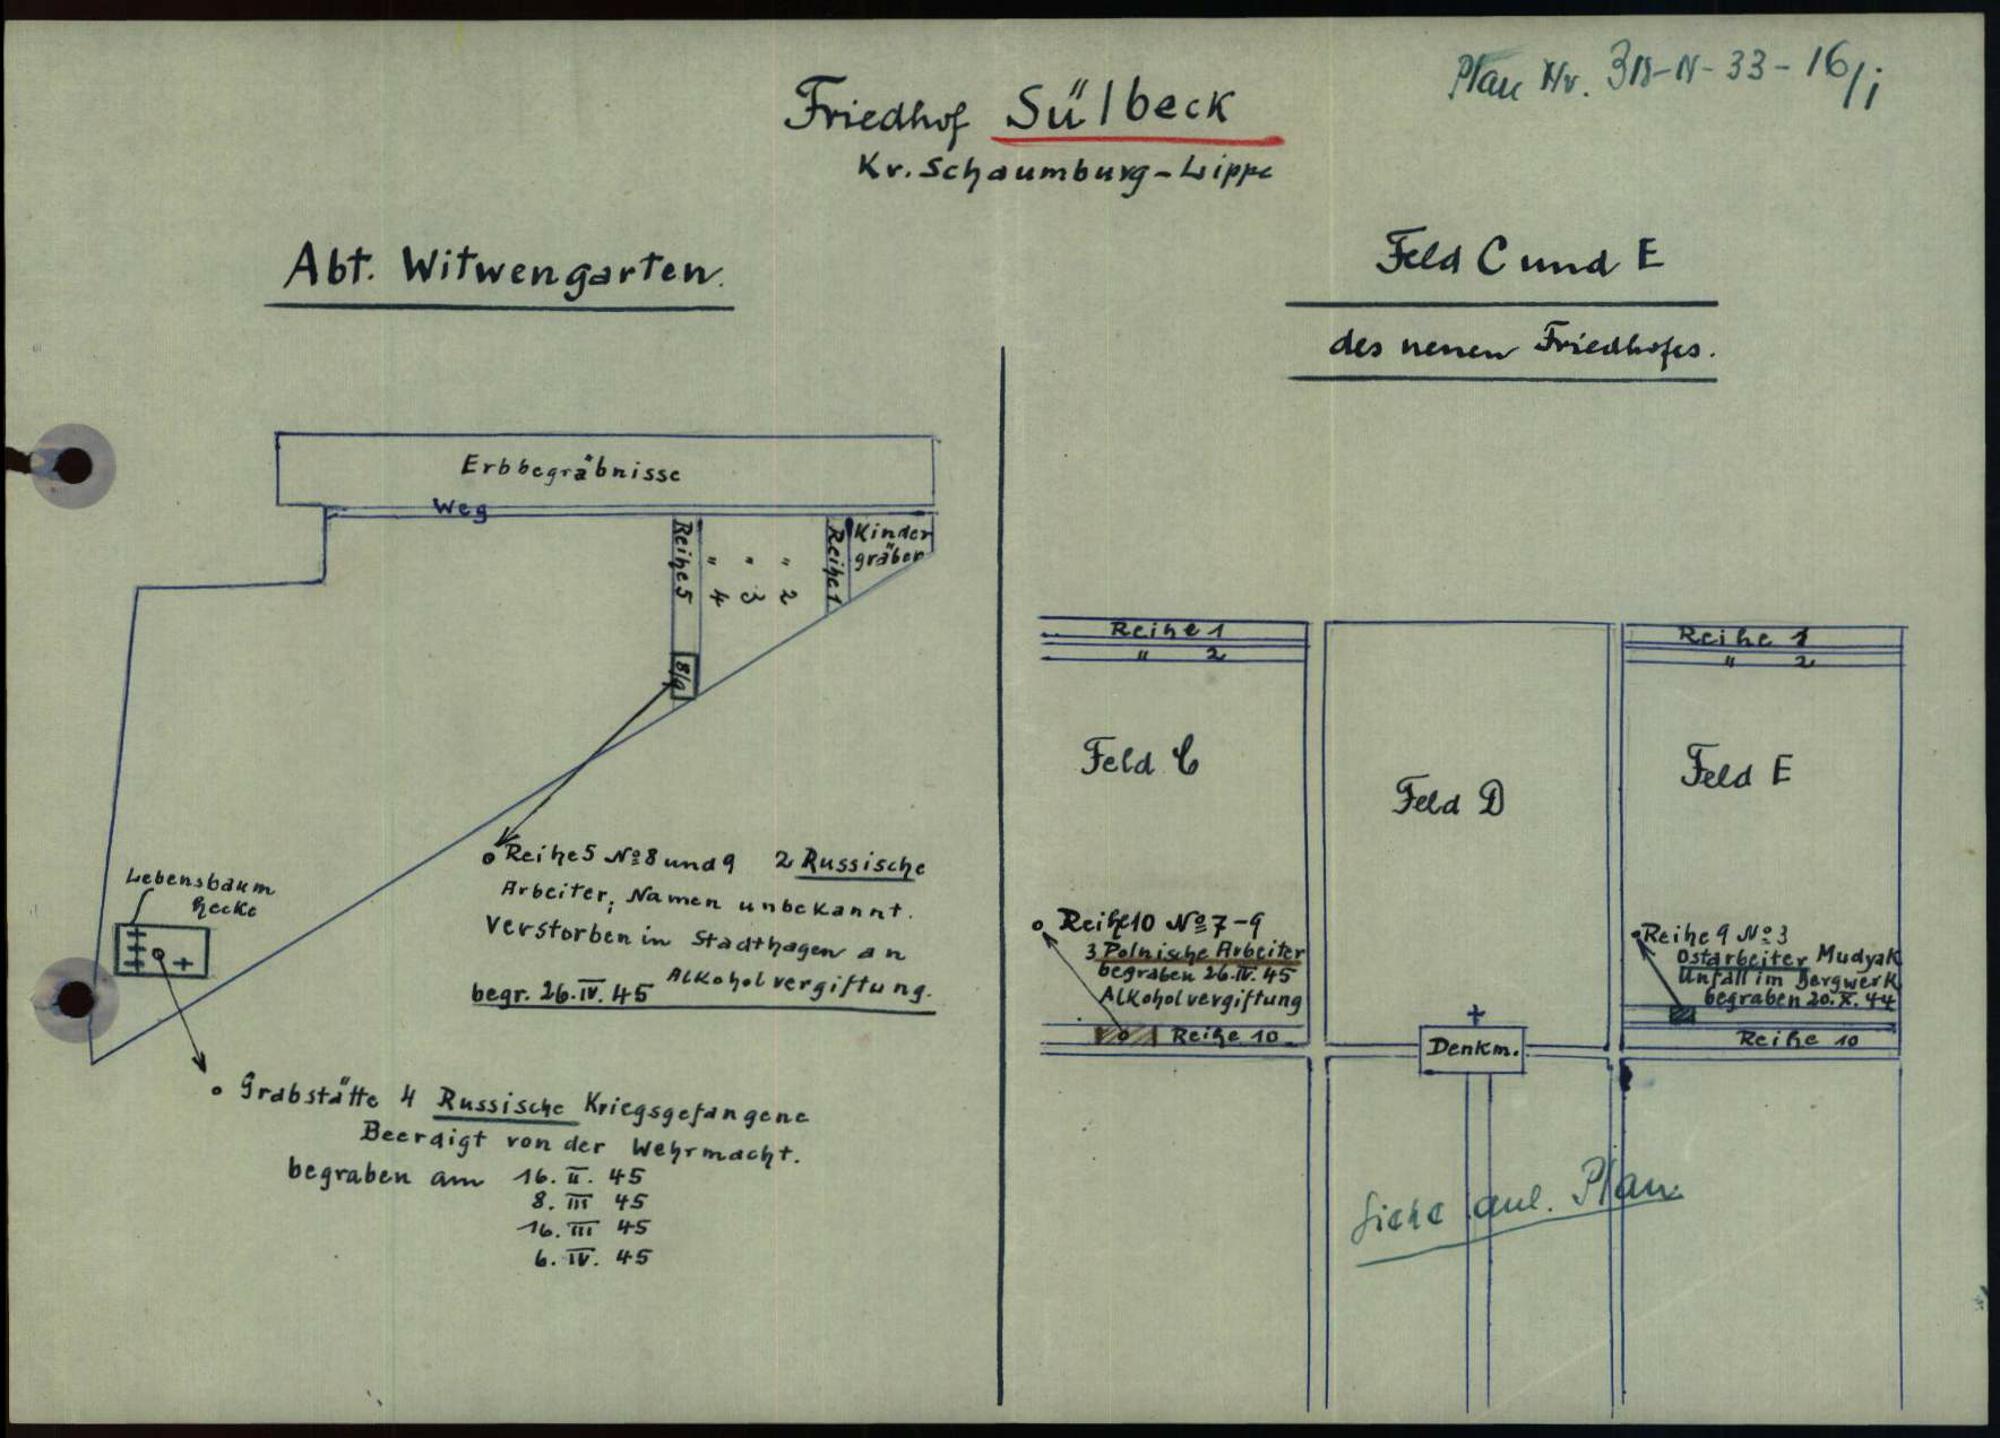 Plan Nr. 318-N-33-16/i
Friedhof Sülbeck
Kr. Schaumburg-Lippe
Abt. Witwengarten.
Erbbegräbnisse
Weg
Reihe 5
" 4
" 3
" 2
Reihe 1
Kinder
gräber
8/9
Reihe 5 No 8 und 9 2 Russische
Arbeiter, Namen unbekannt.
Verstorben in Stadthagen an
Alkoholvergiftung.
begr. 26. IV. 45
Lebensbaum
hecke
Grabstätte 4 Russische Kriegsgefangene
Beerdigt von der Wehrmacht.
begraben am 16. II. 45
8. III 45
16. III 45
6. IV. 45
Feld C und E
des neuen Friedhofes.
Reihe 1
" 2
Feld C
Reihe 10 No 7-9
3 Polnische Arbeiter
begraben 26. IV. 45
Alkoholvergiftung
Reihe 10
Feld D
Denkm.
Reihe 1
" 2
Feld E
Reihe 9 No 3
Ostarbeiter Mudyak
Unfall im Bergwerk
begraben 20. X. 44
Reihe 10
Siehe anl. Plan